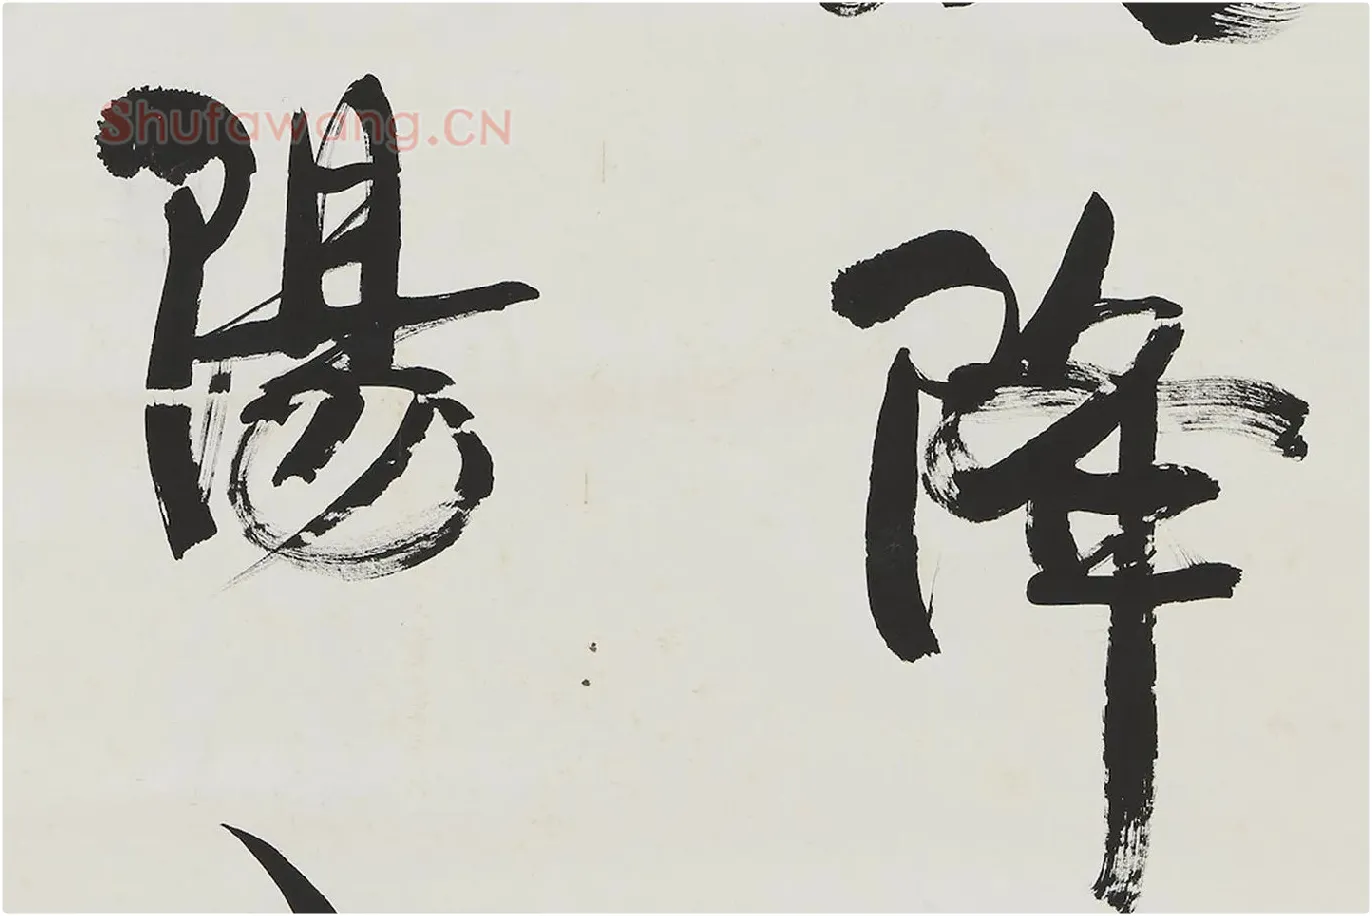 降
陽
Shufawang.CN